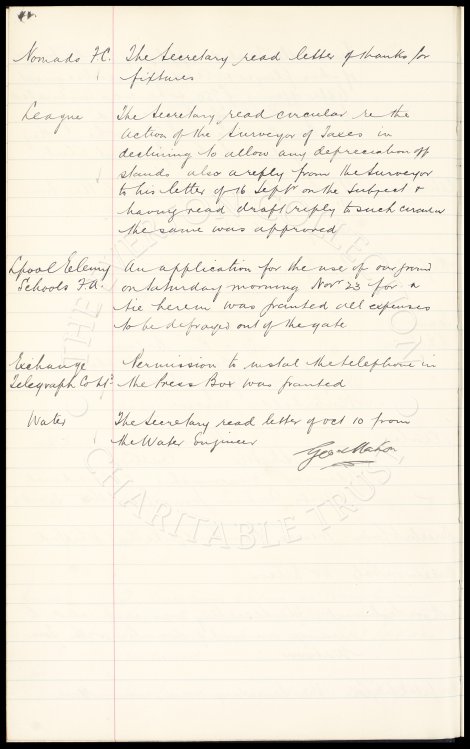 44.
Nomads F.C. The Secretary read letter of thanks for
fixtures
League The Secretary read circular re the
action of the Surveyor of Taxes in
declining to allow any depreciation off
stands also a reply from the Surveyor
to his letter of 16 Sept on the subject &
having read draft reply to such circular
the same was approved
Lpool Elemy An application for the use of our ground
Schools F.A. on Saturday morning Novr 23 for a
tie herein was granted all expenses
to be defrayed out of the gate
Exchange Permission to instal the telephone in
Telegraph Co Ltd the Press Box was granted
Water The Secretary read letter of Oct 10 from
the Water Engineer
Geo Mahon
THE EVERTON COLLECTION
CHARITABLE TRUST